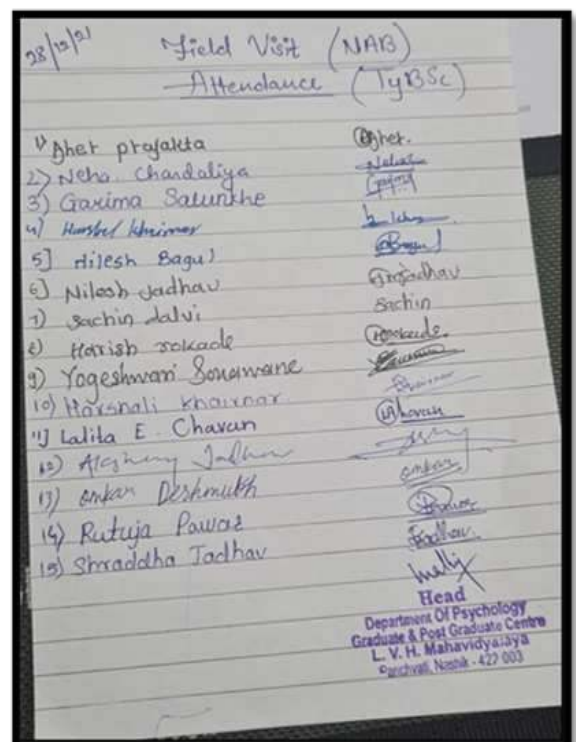 28/12/21 Field Visit (NAB)
Attendance (TyBSc)
1) Aher prajakta Aher.
2) Neha. Chandaliya Neha
3) Garima Salunkhe
4) Harshal khairnar
5] Hitesh Bagul Bagul
6] Nilesh Jadhav Jadhav
7) Sachin dalvi Sachin
8) Harish rokade Rokade.
9) Yogeshwari Sonawane
10) Harshali khairnar
11] Lalita E. Chavan Chavan
12) Jadhav
13) omkar Deshmukh omkar
14) Rutuja Pawar Pawar
15) Shraddha Jadhav Jadhav.
Head
Department Of Psychology
Graduate & Post Graduate Centre
L. V. H. Mahavidyalaya
Panchvati, Nashik - 422 003